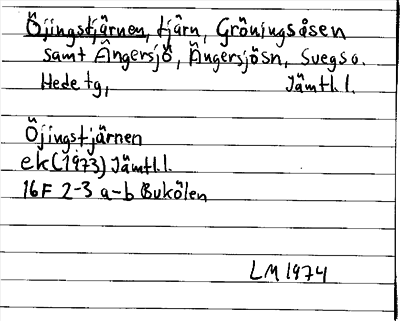 Öjingstjärnen, tjärn, Gröningsåsen
samt Ängersjö, Ängersjösn, Svegs o.
Hede tg, Jämtl.l.
Öjingstjärnen
ek(1973) Jämtl.l.
16F 2-3 a-b Bukölen
LM 1974